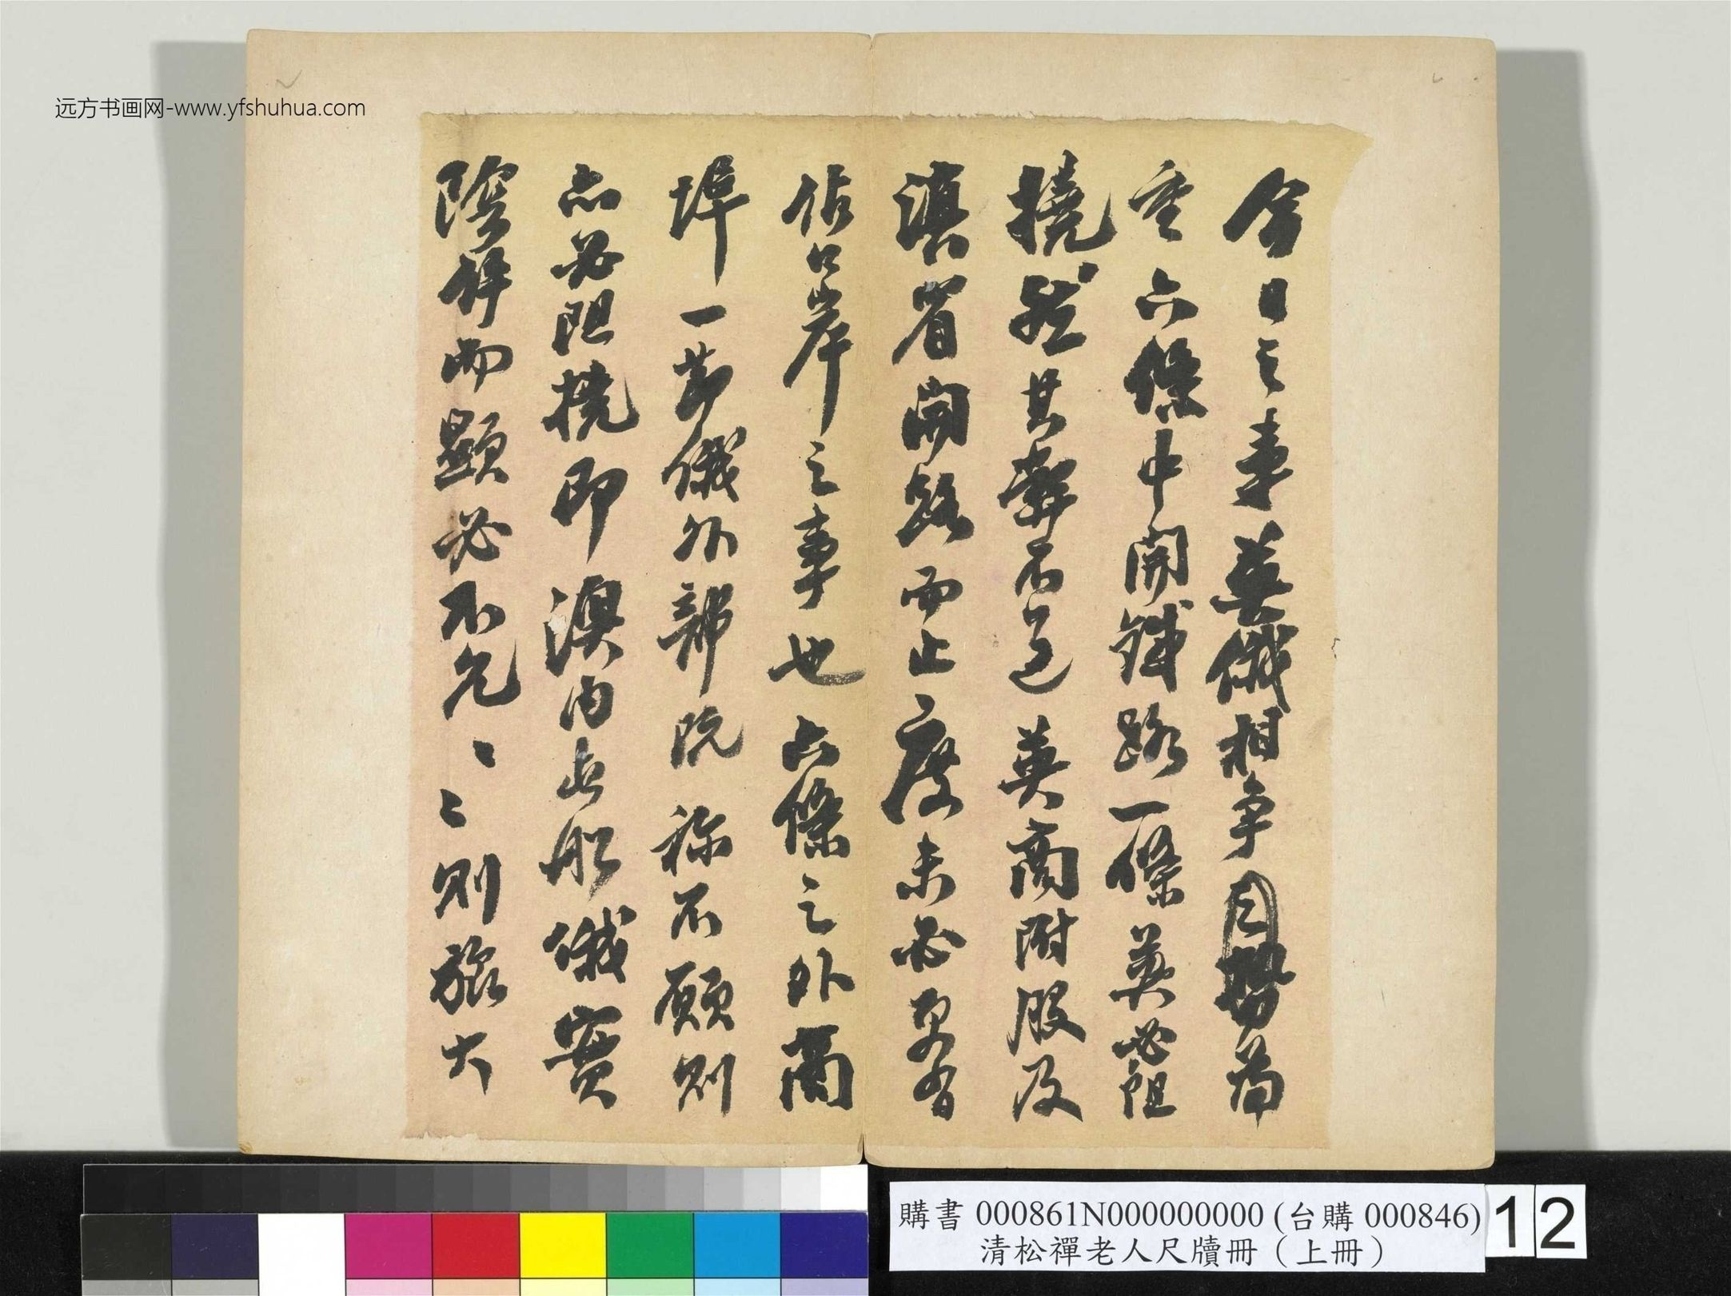 远方书画网-www.yfshuhua.com
今日之事英俄相争目勢為
重六條中開鐵路一條英必阻
撓然其辭不過英商附股及
滇省開路而止度未必更有
佔口岸之事也六條之外商
埠一節俄外部既称不願則
亦必阻撓即澳內出船俄實
陰拜而顯必不允〻〻則旅大
購書 000861N000000000 (台購 000846)
清松禪老人尺牘冊（上冊）
12